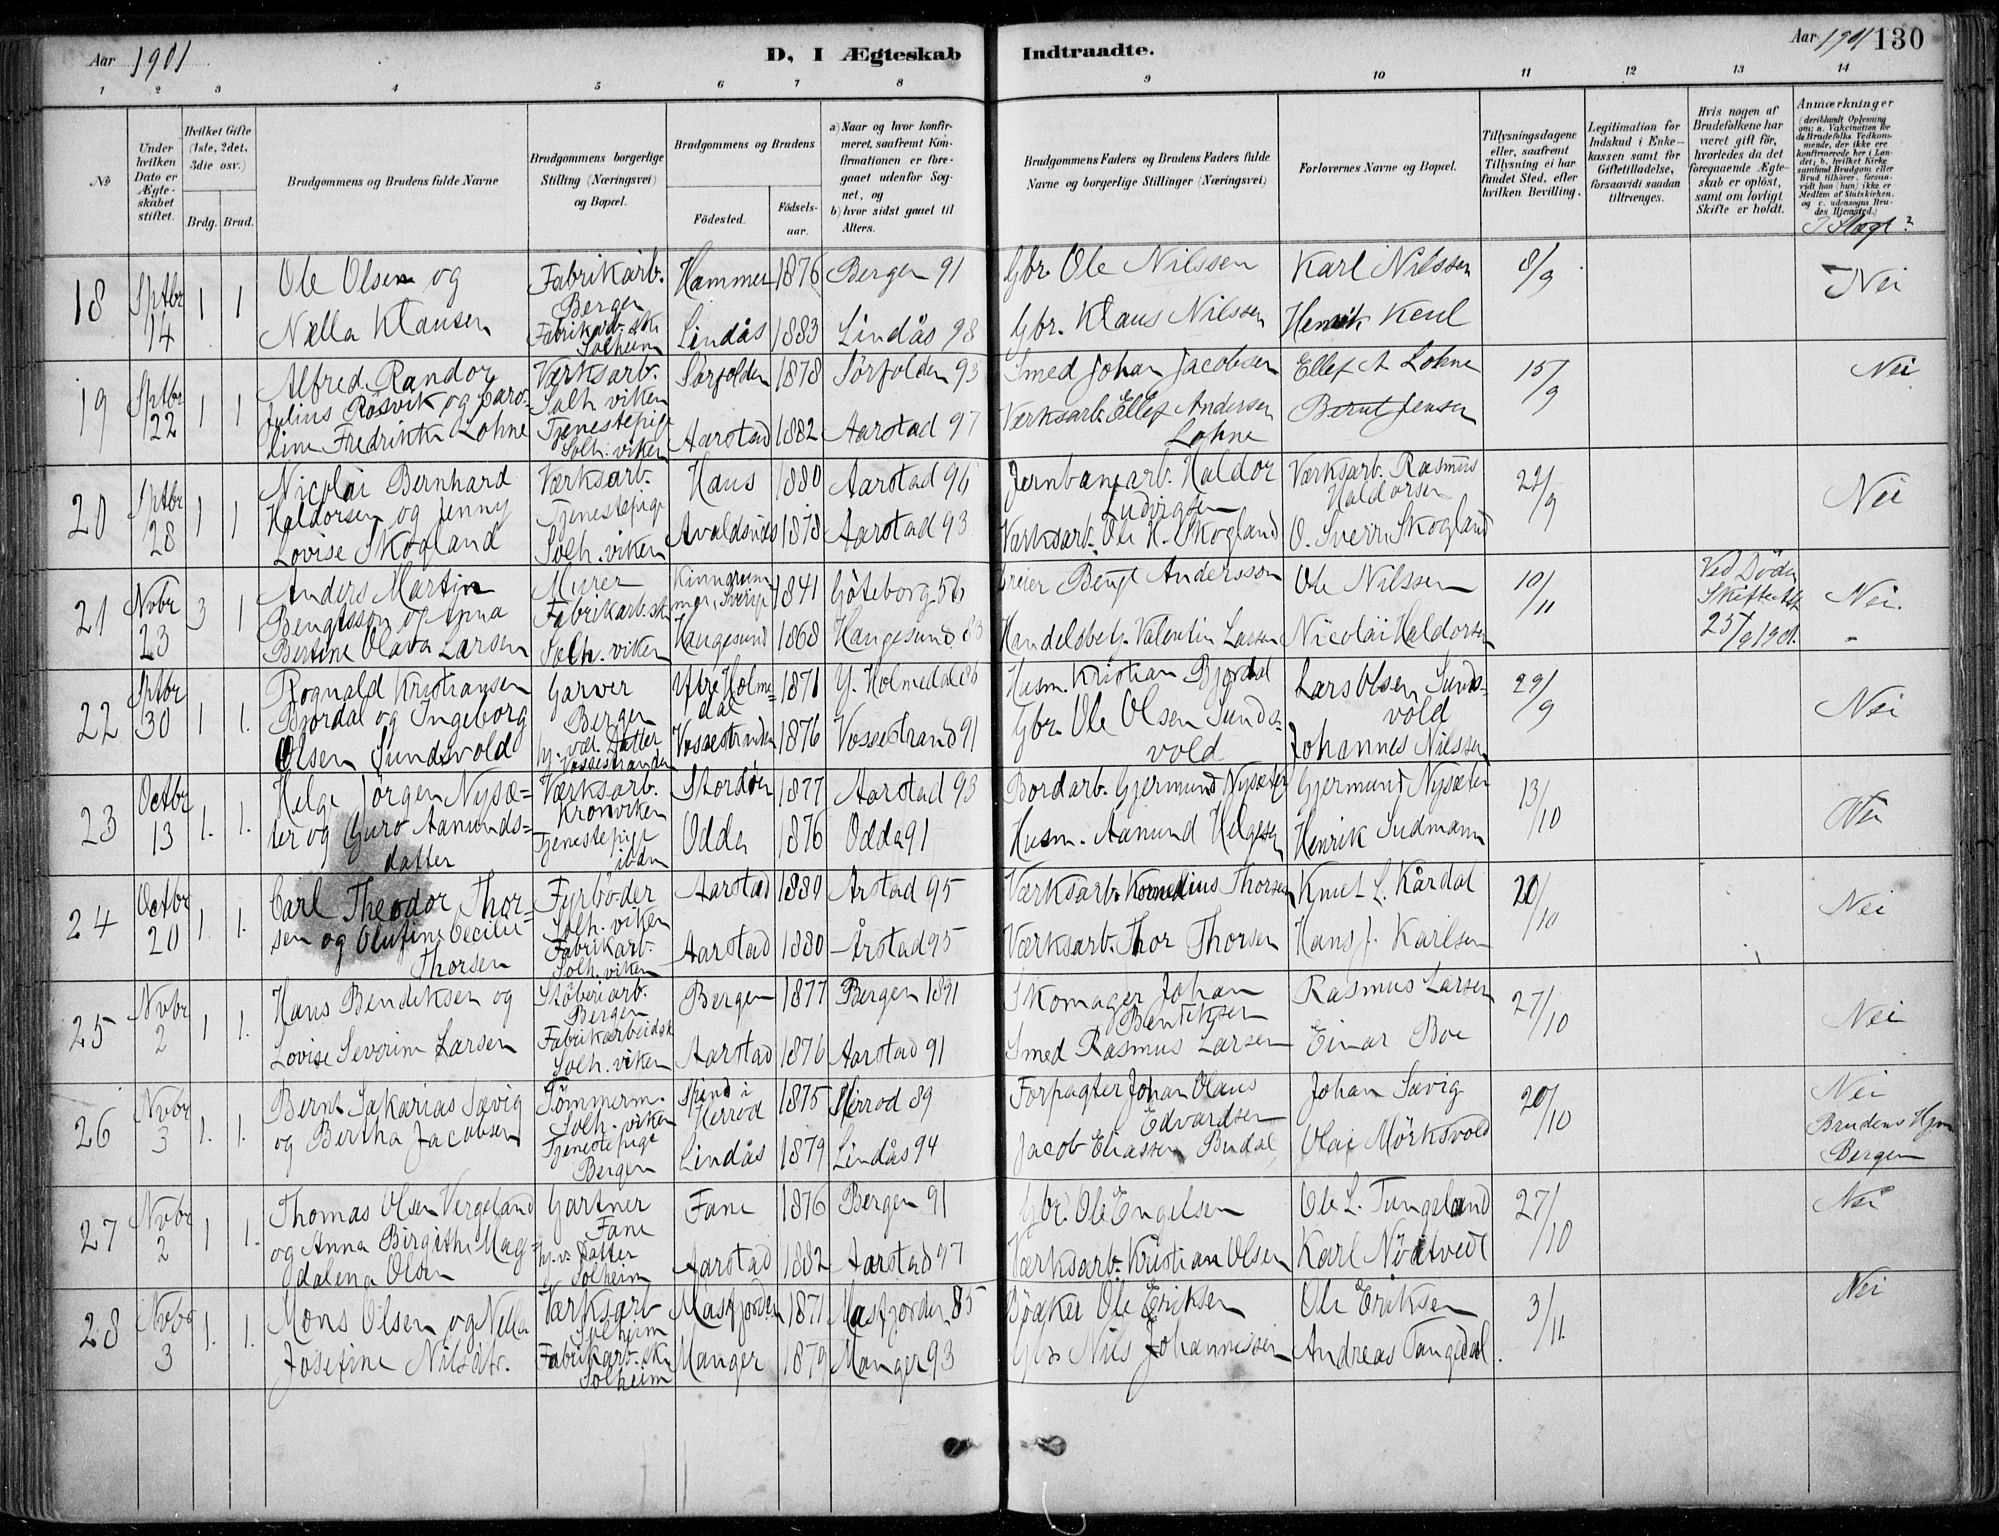 Aar 1901
D, I Ægteskab Indtraadte.
Aar 1901 130
1 2 3 4 5 6 7 8 9 10 11 12 13 14
No
Under hvilken Dato er Ægteskabet stiftet.
Hvilket Gifte (1ste, 2det, 3die osv.)
Brdg. Brud.
Brudgommens og Brudens fulde Navne
Brudgommens borgerlige Stilling (Næringsvei) og Bopæl.
Brudgommens og Brudens
Födested. Födselsaar.
a) Naar og hvor konfirmeret, saafremt Konfirmationen er foregaaet udenfor Sognet, og
b) hvor sidst gaaet til Alters.
Brudgommens Faders og Brudens Faders fulde Navne og borgerlige Stillinger (Næringsvei)
Forlovernes Navne og Bopæl.
Tillysningsdagene eller, saafremt Tillysning ei har fundet Sted, efter hvilken Bevilling.
Legitimation for Indskud i Enkekassen samt for Giftetilladelse, forsaavidt saadan tiltrænges.
Hvis nogen af Brudefolkene har været gift för, hvorledes da det foregaaende Ægteskab er oplöst, samt om lovligt Skifte er holdt.
Anmærkninger (deriblandt Oplysning om: a. Vakcination for de Brudefolks Vedkommende, der ikke ere konfirmerede her i Landet; b. hvilket Kirkesamfund Brudgom eller Brud tilhörer, forsaavidt han (hun) ikke er Medlem af Statskirken, og c. udensogns Brudes Hjemsted.)
18 Sptbr 14 1 1 Ole Olsen og Nella Klausen
Fabrikarb. Bergen Fabrikarb.ske Solheim
Hammer 1876 Bergen 91
Lindås 1883 Lindås 98
Gbr. Ole Nilssen
Gbr. Klaus Nilssen
Karl Nilssen
Henrik
8/9 Nei
19 Sptbr 22 1 1 Alfred Randor Julius Rösvik og Caroline Fredrikke Lohne
Værksarb. Solh.viken Tjenestepige Solh.viken
Sørfolden 1878 Sørfolden 93
Aarstad 1882 Aarstad 97
Smed Johan Jacobsen
Værksarb. Ellef Andersen Lohne
Ellef A Lohne
Bernt Jensen
15/9 Nei
20 Sptbr 28 1 1 Nicolai Bernhard Haldorsen og Jenny Lovise Skogland
Værksarb. Tjenestepige Solh.viken
Haus 1880 Aarstad 96
Avaldsnes 1878 Aarstad 93
Jernbanearb. Haldor Ludvigsen
Værksarb. Ole K. Skogland
Værksarb. Rasmus Haldorsen
O. Sverr. Skogland
22/9 Nei
21 Nvbr 23 3 1 Anders Martin Bengtsson og Anna Bertine Olava Larsen
Murer Fabrikarb.ske Solh.viken
Sverige 1841 Göteborg 56
Haugesund 1868 Haugesund 83
Bengt Andersson
Handelsbetj. Valentin Larsen
Ole Nilssen
Nicolai Haldorsen
10/11
Ved Döden Skifteatt 25/9 1901.
Nei.
22 Sptbr 30 1 1. Rognald Kristiansen Bjordal og Ingeborg Olsen Sundsvold
Garver Bergen hj.vær. Datter Vossestranden
Ytre Holmedal 1871 Y. Holmedal 86
Vossestranden 1876 Vossestrand 91
Husm. Kristian Bjordal
Gbr. Ole Olsen Sundsvold
Lars Olsen Sundsvold
Johannes Nilssen
29/9 Nei
23 Octbr 13 1. 1. Helge Jörgen Nysæter og Guro Aamundsdatter
Værksarb. Kronviken Tjenestepige ibdm
Stordöen 1877 Aarstad 93
Odda 1876 Odda 91
Bordarb. Gjermund Nysæter
Husm. Aamund Helgesen
Gjermund Nysæter
Henrik Sudmann
13/10 Nei
24 Octbr 20 1. 1. Carl Theodor Thorsen og Olufine Cecilie Thorsen
Fyrböder Solh.viken Fabrikarb. Solh.viken
Aarstad 1880 Arstad 95
Aarstad 1880 Årstad 95
Værksarb. Kornelius Thorsen
Værksarb. Thor Thorsen
Knut L. Kårdal
Hans J. Karlsen
20/10 Nei
25 Nvbr 2 1 1. Hans Bendiksen og Lovise Severine Larsen
Stöberiarb. Bergen Fabrikarbeidsk Solh.viken
Bergen 1877 Bergen 1891
Aarstad 1876 Aarstad 91
Skomager Johan Bentiksen
Smed Rasmus Larsen
Rasmus Larsen
Einar Boe
27/10 Nei
26 Nvbr 3 1. 1. Bernt Sakarias Sævig og Bertha Jacobsen
Tömmerm. Solh.viken Tjenestepige Bergen
Strand i Herrød 1875 Herrod 89
Lindås 1879 Lindås 94
Forpagter Johan Olaus Edvardsen
Jacob Eliassen
Johan Sævig
Olai Mörksvold
20/10 Nei
Brudens Hjem Bergen
27 Nvbr 2 1 1. Thomas Olsen Vergeland og Anna Birgithe Magdalena Olsen
Gartner Fane hj.v. Datter Solheim
Fane 1876 Bergen 91
Aarstad 1882 Aarstad 97
Gbr. Ole Engelsen
Værksarb. Kristian Olsen
Ole L. Tungeland
Karl Nödtvedt
27/10 Nei
28 Nvbr 3 1. 1. Mons Olsen og Nella Josefine Nilsdtr.
Værksarb Solheim Fabrikarb.ske Solheim
Masfjorden 1871 Masfjorden 85
Manger 1879 Manger 93
Bödker Ole Eriksen
Gbr Nils Johannessen
Ole Eriksen
Andreas Tangedal.
3/11. Nei